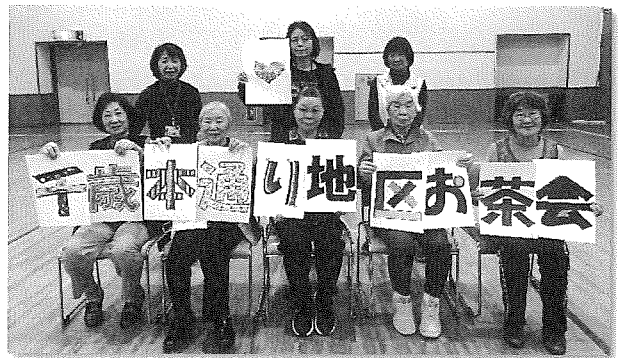 千歳本通り地区お茶会